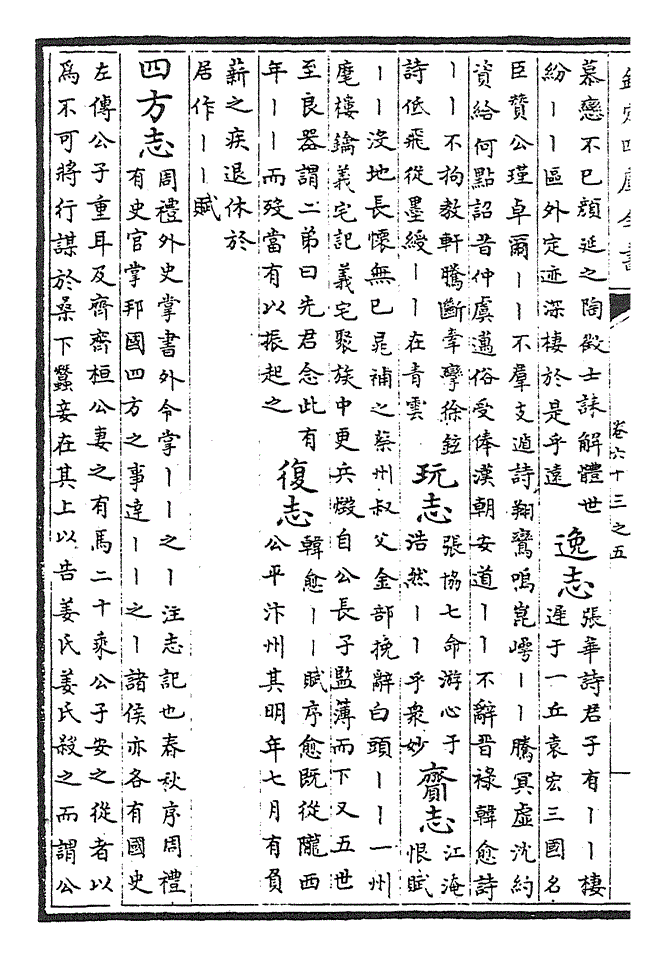 欽定四庫全書
卷六十三之五
一
慕戀不已顏延之陶徵士誄解體世
紛丨丨區外定迹深棲於是乎遠
逸志
張華詩君子有丨丨棲
遲于一丘袁宏三國名
臣贊公瑾卓爾丨丨不羣支遁詩翔鸞鳴崑崿丨丨騰冥虛沈約
資給何點詔昔仲虞邁俗受俸漢朝安道丨丨不辭晉祿韓愈詩
丨丨不拘教軒騰斷牽孿徐鉉
詩低飛從墨綬丨丨在青雲
玩志
張協七命游心于
浩然丨丨乎衆妙
齎志
江淹
恨賦
丨丨沒地長懷無已晁補之蔡州叔父金部挽辭白頭丨丨一州
麾樓鑰義宅記義宅聚族中更兵燬自公長子監薄而下又五世
至良器謂二弟曰先君念此有
年丨丨而歿當有以振起之
復志
韓愈丨丨賦序愈既從隴西
公平汴州其明年七月有負
薪之疾退休於
居作丨丨賦
四方志
周禮外史掌書外令掌丨丨之丨注志記也春秋序周禮
有史官掌邦國四方之事達丨丨之丨諸侯亦各有國史
左傳公子重耳及齊齊桓公妻之有馬二十乘公子安之從者以
為不可將行謀於桑下蠶妾在其上以告姜氏姜氏殺之而謂公